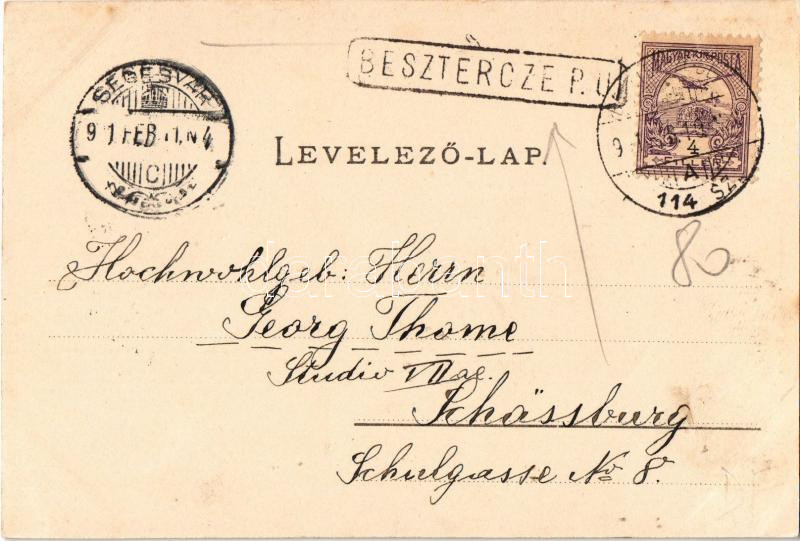 BESZTERCZE P. U.
SEGESVÁR
91 FEB 11. N4
C
MAGYAR KIR. POSTA
9
4
A
114 SZ.
LEVELEZŐ-LAP.
80
darabanth
Hochwohlgeb: Herrn
Georg Thome
Studio VIIae.
Schässburg
Schulgasse No 8.